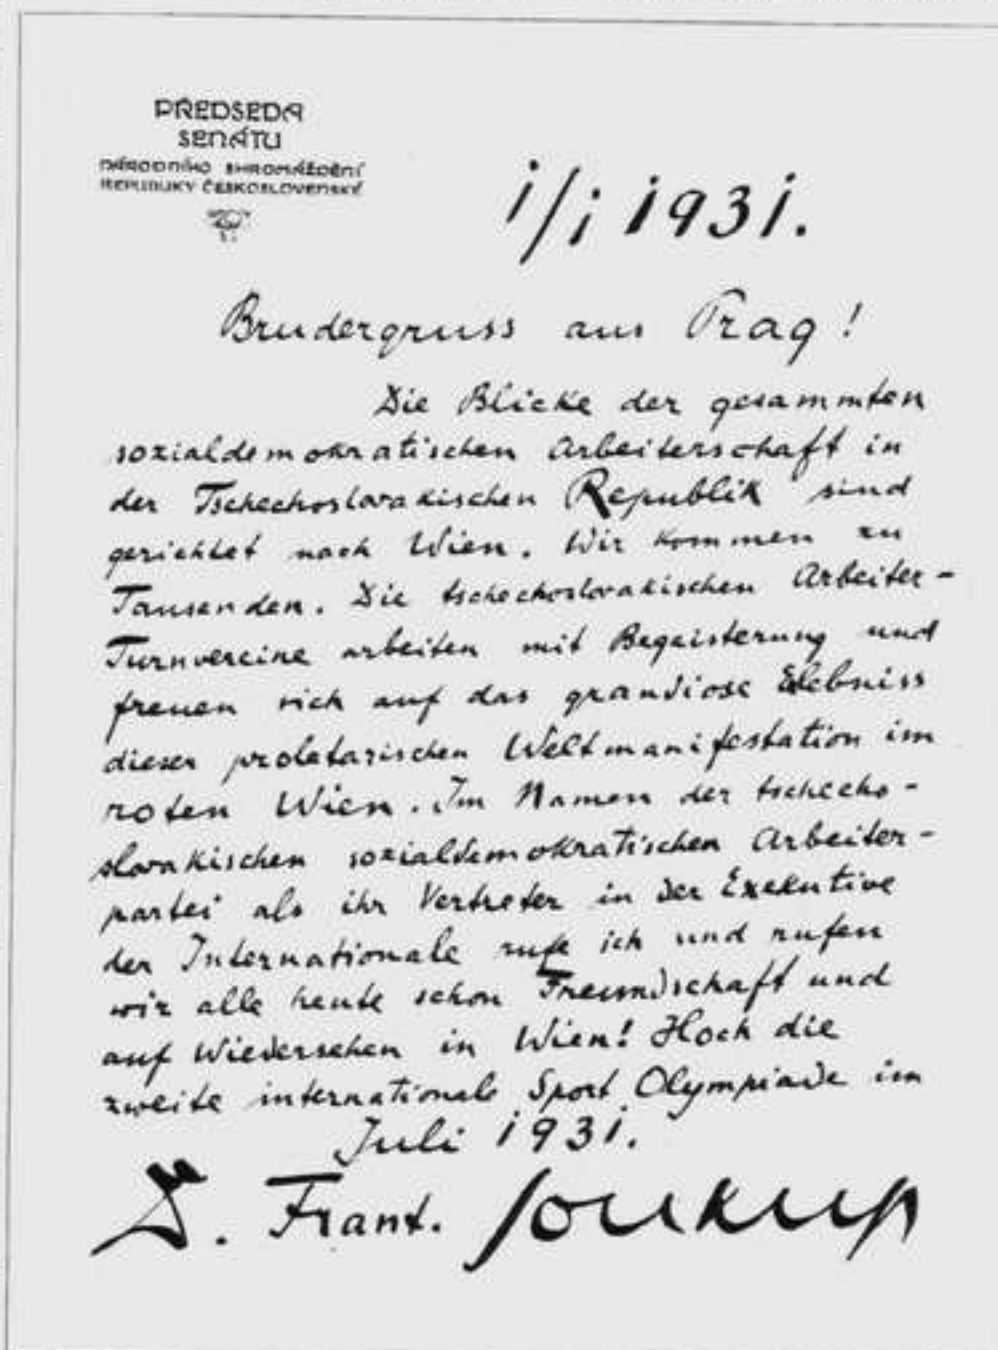 PŘEDSEDA
SENÁTU
NÁRODNÍHO SHROMÁŽDĚNÍ
REPUBLIKY ČESKOSLOVENSKÉ
1/1 1931.
Brudergruss aus Prag!
Die Blicke der gesammten
sozialdemokratischen Arbeiterschaft in
der Tschechoslovakischen Republik sind
gerichtet nach Wien. Wir kommen zu
Tausenden. Die tschechoslovakischen Arbeiter-
Turnvereine arbeiten mit Begeisterung und
freuen sich auf das grandiose Erlebniss
dieser proletarischen Weltmanifestation im
roten Wien. Im Namen der tschecho-
slovakischen sozialdemokratischen Arbeiter-
partei als ihr Vertreter in der Exekutive
der Internationale rufe ich und rufen
wir alle heute schon Freundschaft und
auf Wiedersehen in Wien! Hoch die
zweite internationale Sport Olympiade im
Juli 1931.
D. Frant. Soukup